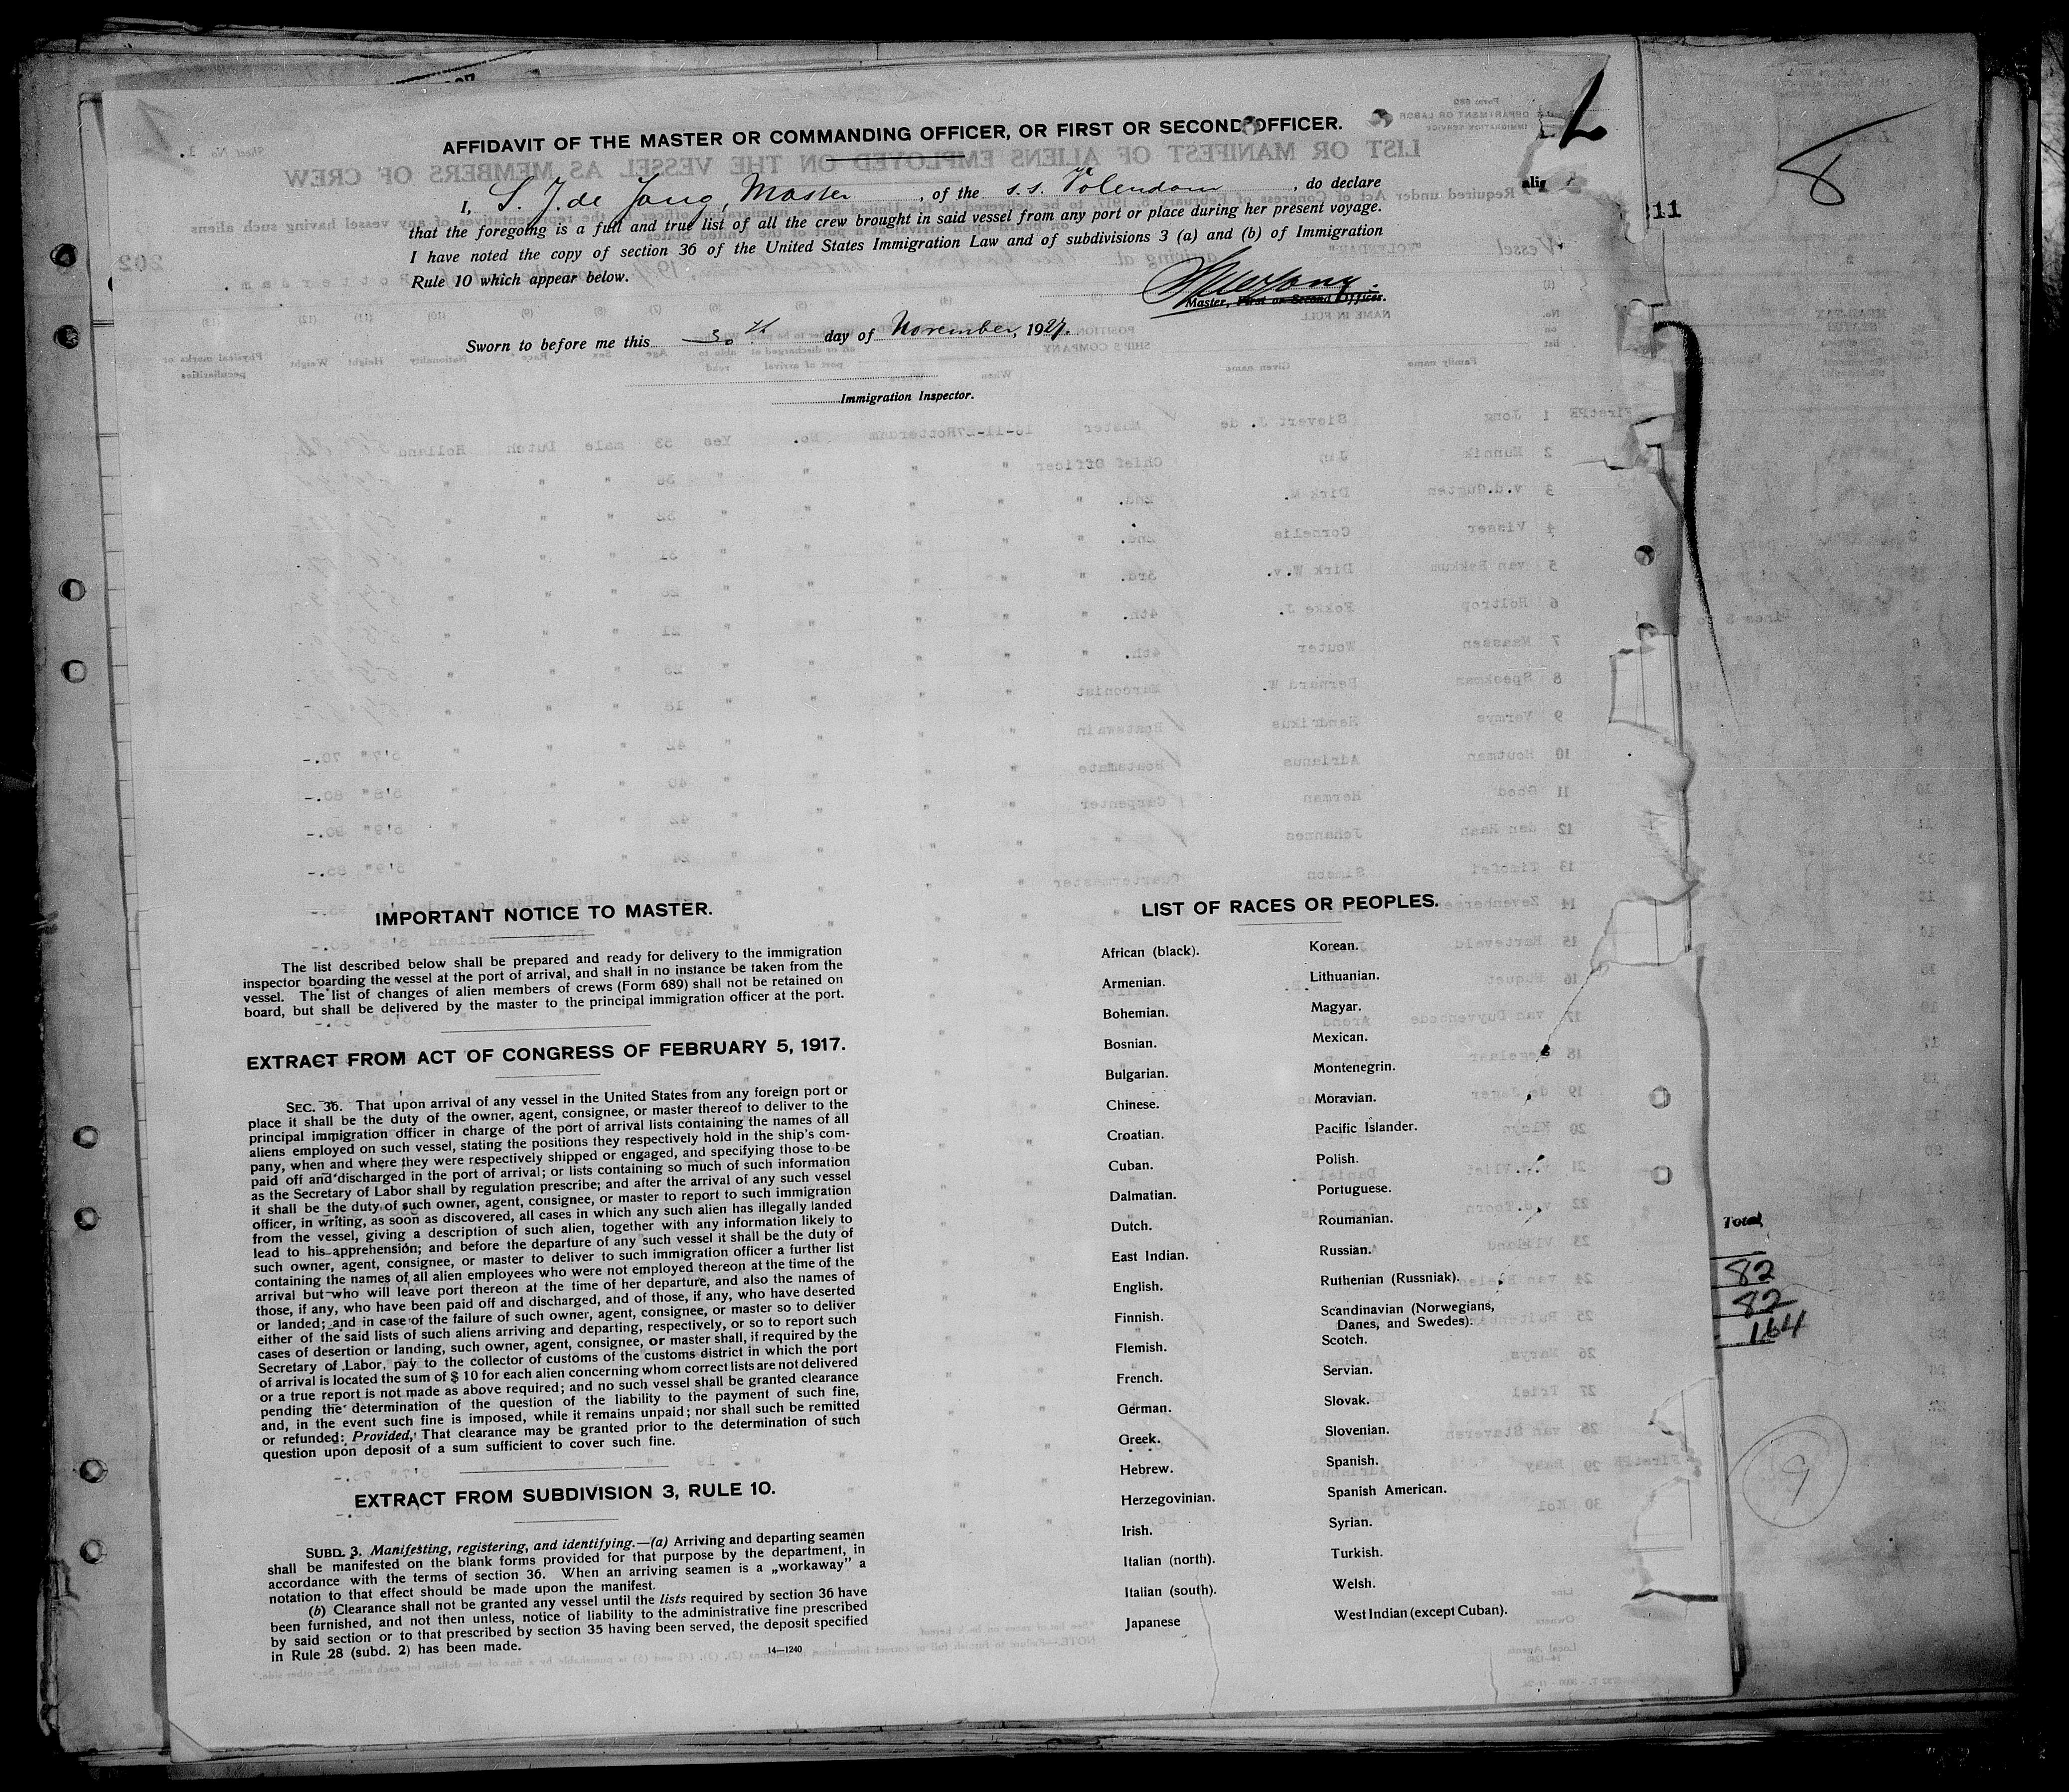 AFFIDAVIT OF THE MASTER OR COMMANDING OFFICER, OR FIRST OR SECOND OFFICER.
I, S. J. de Jong, Master, of the s.s. Volendam, do declare
that the foregoing is a full and true list of all the crew brought in said vessel from any port or place during her present voyage.
I have noted the copy of section 36 of the United States Immigration Law and of subdivisions 3 (a) and (b) of Immigration
Rule 10 which appear below.
Master, First or Second Officer.
Sworn to before me this 30th day of November, 1927.
Immigration Inspector.
8
11
IMPORTANT NOTICE TO MASTER.
The list described below shall be prepared and ready for delivery to the immigration
inspector boarding the vessel at the port of arrival, and shall in no instance be taken from the
vessel. The list of changes of alien members of crews (Form 689) shall not be retained on
board, but shall be delivered by the master to the principal immigration officer at the port.
EXTRACT FROM ACT OF CONGRESS OF FEBRUARY 5, 1917.
SEC. 36. That upon arrival of any vessel in the United States from any foreign port or
place it shall be the duty of the owner, agent, consignee, or master thereof to deliver to the
principal immigration officer in charge of the port of arrival lists containing the names of all
aliens employed on such vessel, stating the positions they respectively hold in the ship's com-
pany, when and where they were respectively shipped or engaged, and specifying those to be
paid off and discharged in the port of arrival; or lists containing so much of such information
as the Secretary of Labor shall by regulation prescribe; and after the arrival of any such vessel
it shall be the duty of such owner, agent, consignee, or master to report to such immigration
officer, in writing, as soon as discovered, all cases in which any such alien has illegally landed
from the vessel, giving a description of such alien, together with any information likely to
lead to his apprehension; and before the departure of any such vessel it shall be the duty of
such owner, agent, consignee, or master to deliver to such immigration officer a further list
containing the names of all alien employees who were not employed thereon at the time of the
arrival but who will leave port thereon at the time of her departure, and also the names of
those, if any, who have been paid off and discharged, and of those, if any, who have deserted
or landed; and in case of the failure of such owner, agent, consignee, or master so to deliver
either of the said lists of such aliens arriving and departing, respectively, or so to report such
cases of desertion or landing, such owner, agent, consignee, or master shall, if required by the
Secretary of Labor, pay to the collector of customs of the customs district in which the port
of arrival is located the sum of $ 10 for each alien concerning whom correct lists are not delivered
or a true report is not made as above required; and no such vessel shall be granted clearance
pending the determination of the question of the liability to the payment of such fine,
and, in the event such fine is imposed, while it remains unpaid; nor shall such be remitted
or refunded: Provided, That clearance may be granted prior to the determination of such
question upon deposit of a sum sufficient to cover such fine.
EXTRACT FROM SUBDIVISION 3, RULE 10.
SUBD. 3. Manifesting, registering, and identifying.—(a) Arriving and departing seamen
shall be manifested on the blank forms provided for that purpose by the department, in
accordance with the terms of section 36. When an arriving seamen is a „workaway” a
notation to that effect should be made upon the manifest.
(b) Clearance shall not be granted any vessel until the lists required by section 36 have
been furnished, and not then unless, notice of liability to the administrative fine prescribed
by said section or to that prescribed by section 35 having been served, the deposit specified
in Rule 28 (subd. 2) has been made.
14—1240
LIST OF RACES OR PEOPLES.
African (black).
Armenian.
Bohemian.
Bosnian.
Bulgarian.
Chinese.
Croatian.
Cuban.
Dalmatian.
Dutch.
East Indian.
English.
Finnish.
Flemish.
French.
German.
Greek.
Hebrew.
Herzegovinian.
Irish.
Italian (north).
Italian (south).
Japanese
Korean.
Lithuanian.
Magyar.
Mexican.
Montenegrin.
Moravian.
Pacific Islander.
Polish.
Portuguese.
Roumanian.
Russian.
Ruthenian (Russniak).
Scandinavian (Norwegians,
Danes, and Swedes).
Scotch.
Servian.
Slovak.
Slovenian.
Spanish.
Spanish American.
Syrian.
Turkish.
Welsh.
West Indian (except Cuban).
Total
82
82
164
9